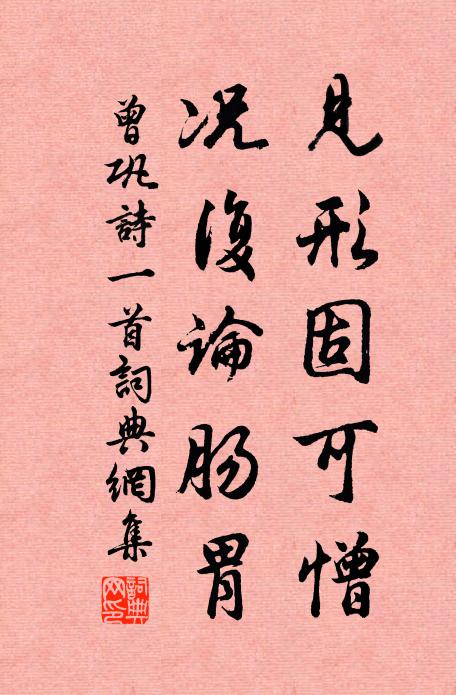 見形固可憎
況復論肠胃
曾巩詩一首詞典網集
詞典網印